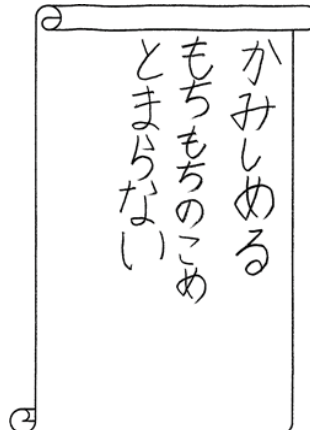 かみしめる
もちもちのこめ
とまらない